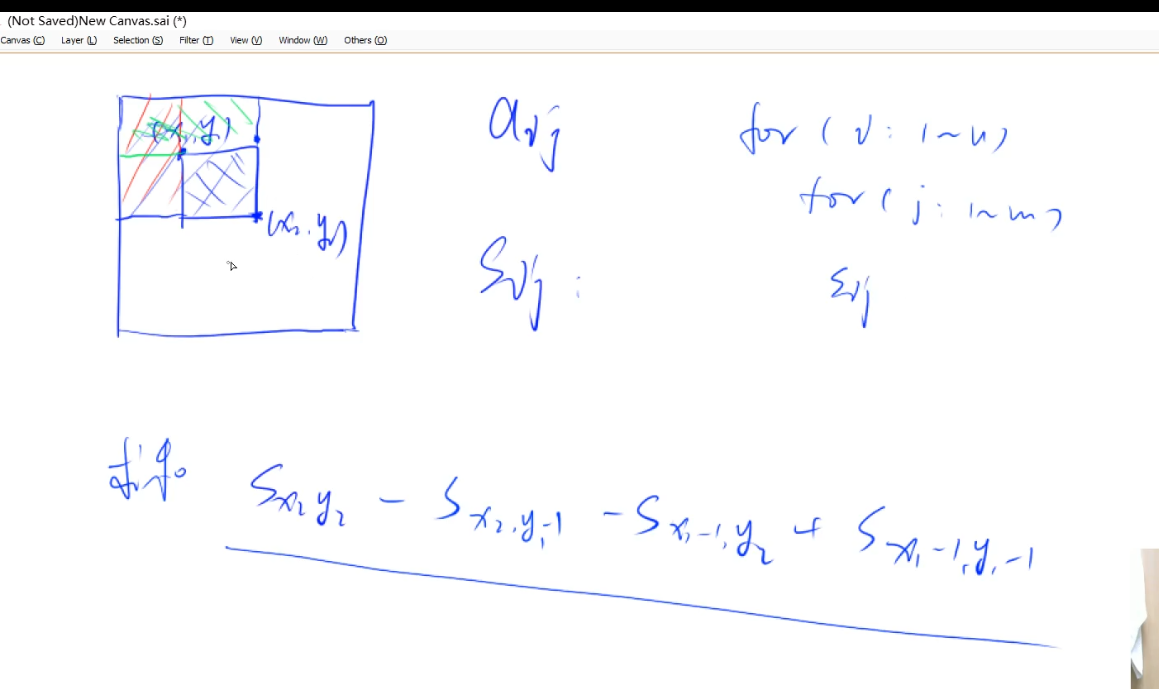 (Not Saved)New Canvas.sai (*)
Canvas (C) Layer (L) Selection (S) Filter (T) View (V) Window (W) Others (O)
(x₁, y₁)
(x₂, y₂)
aᵢⱼ
Sᵢⱼ :
for ( i : 1~n )
for ( j : 1~m )
Sᵢⱼ
Sx₂y₂ - Sx₂,y₁-1 - Sx₁-1,y₂ + Sx₁-1,y₁-1